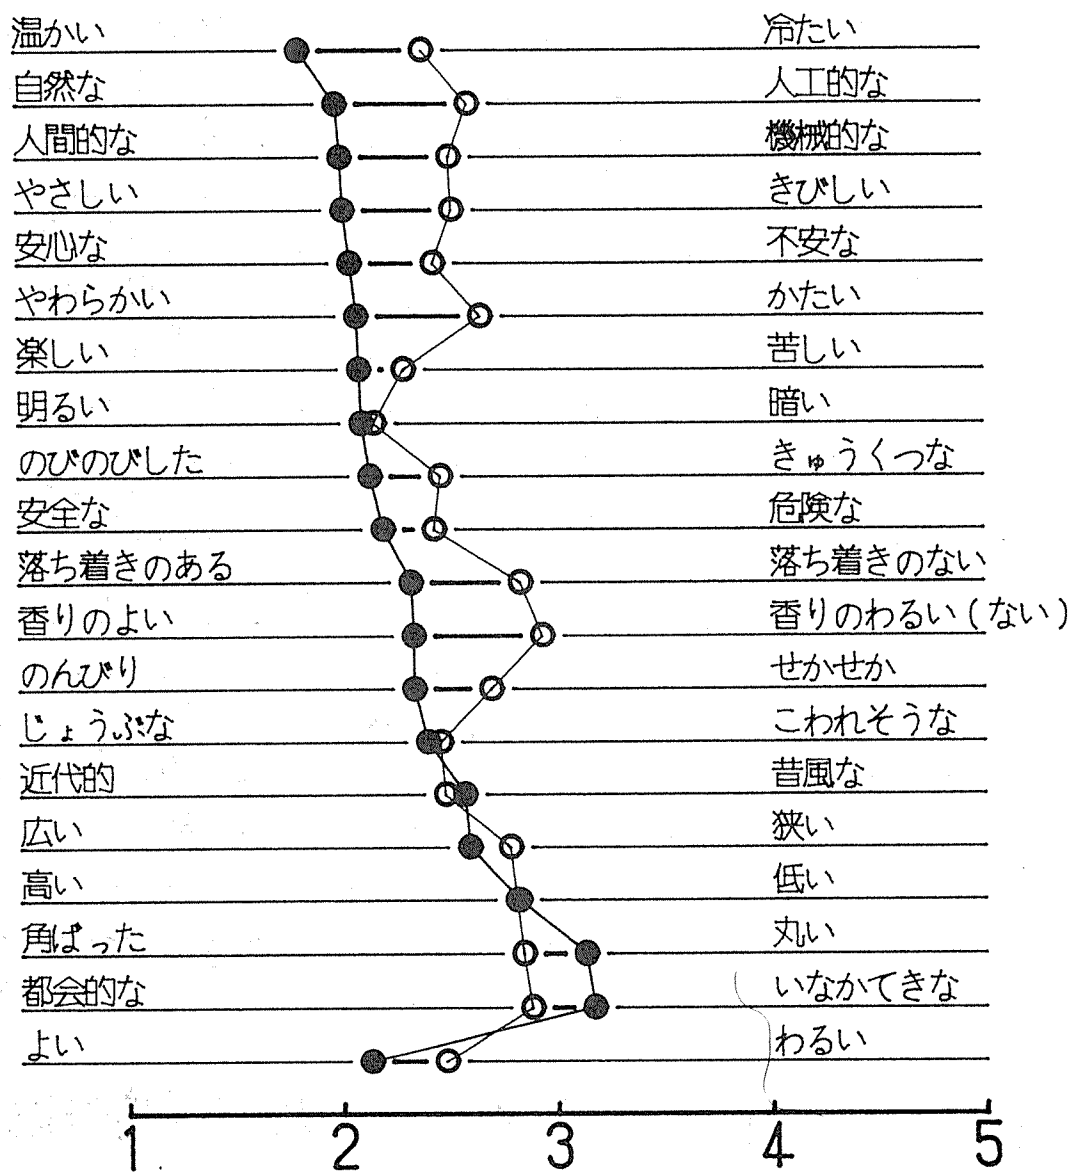 温かい 冷たい
自然な 人工的な
人間的な 機械的な
やさしい きびしい
安心な 不安な
やわらかい かたい
楽しい 苦しい
明るい 暗い
のびのびした きゅうくつな
安全な 危険な
落ち着きのある 落ち着きのない
香りのよい 香りのわるい(ない)
のんびり せかせか
じょうぶな こわれそうな
近代的 昔風な
広い 狭い
高い 低い
角ばった 丸い
都会的な いなかてきな
よい わるい
1 2 3 4 5